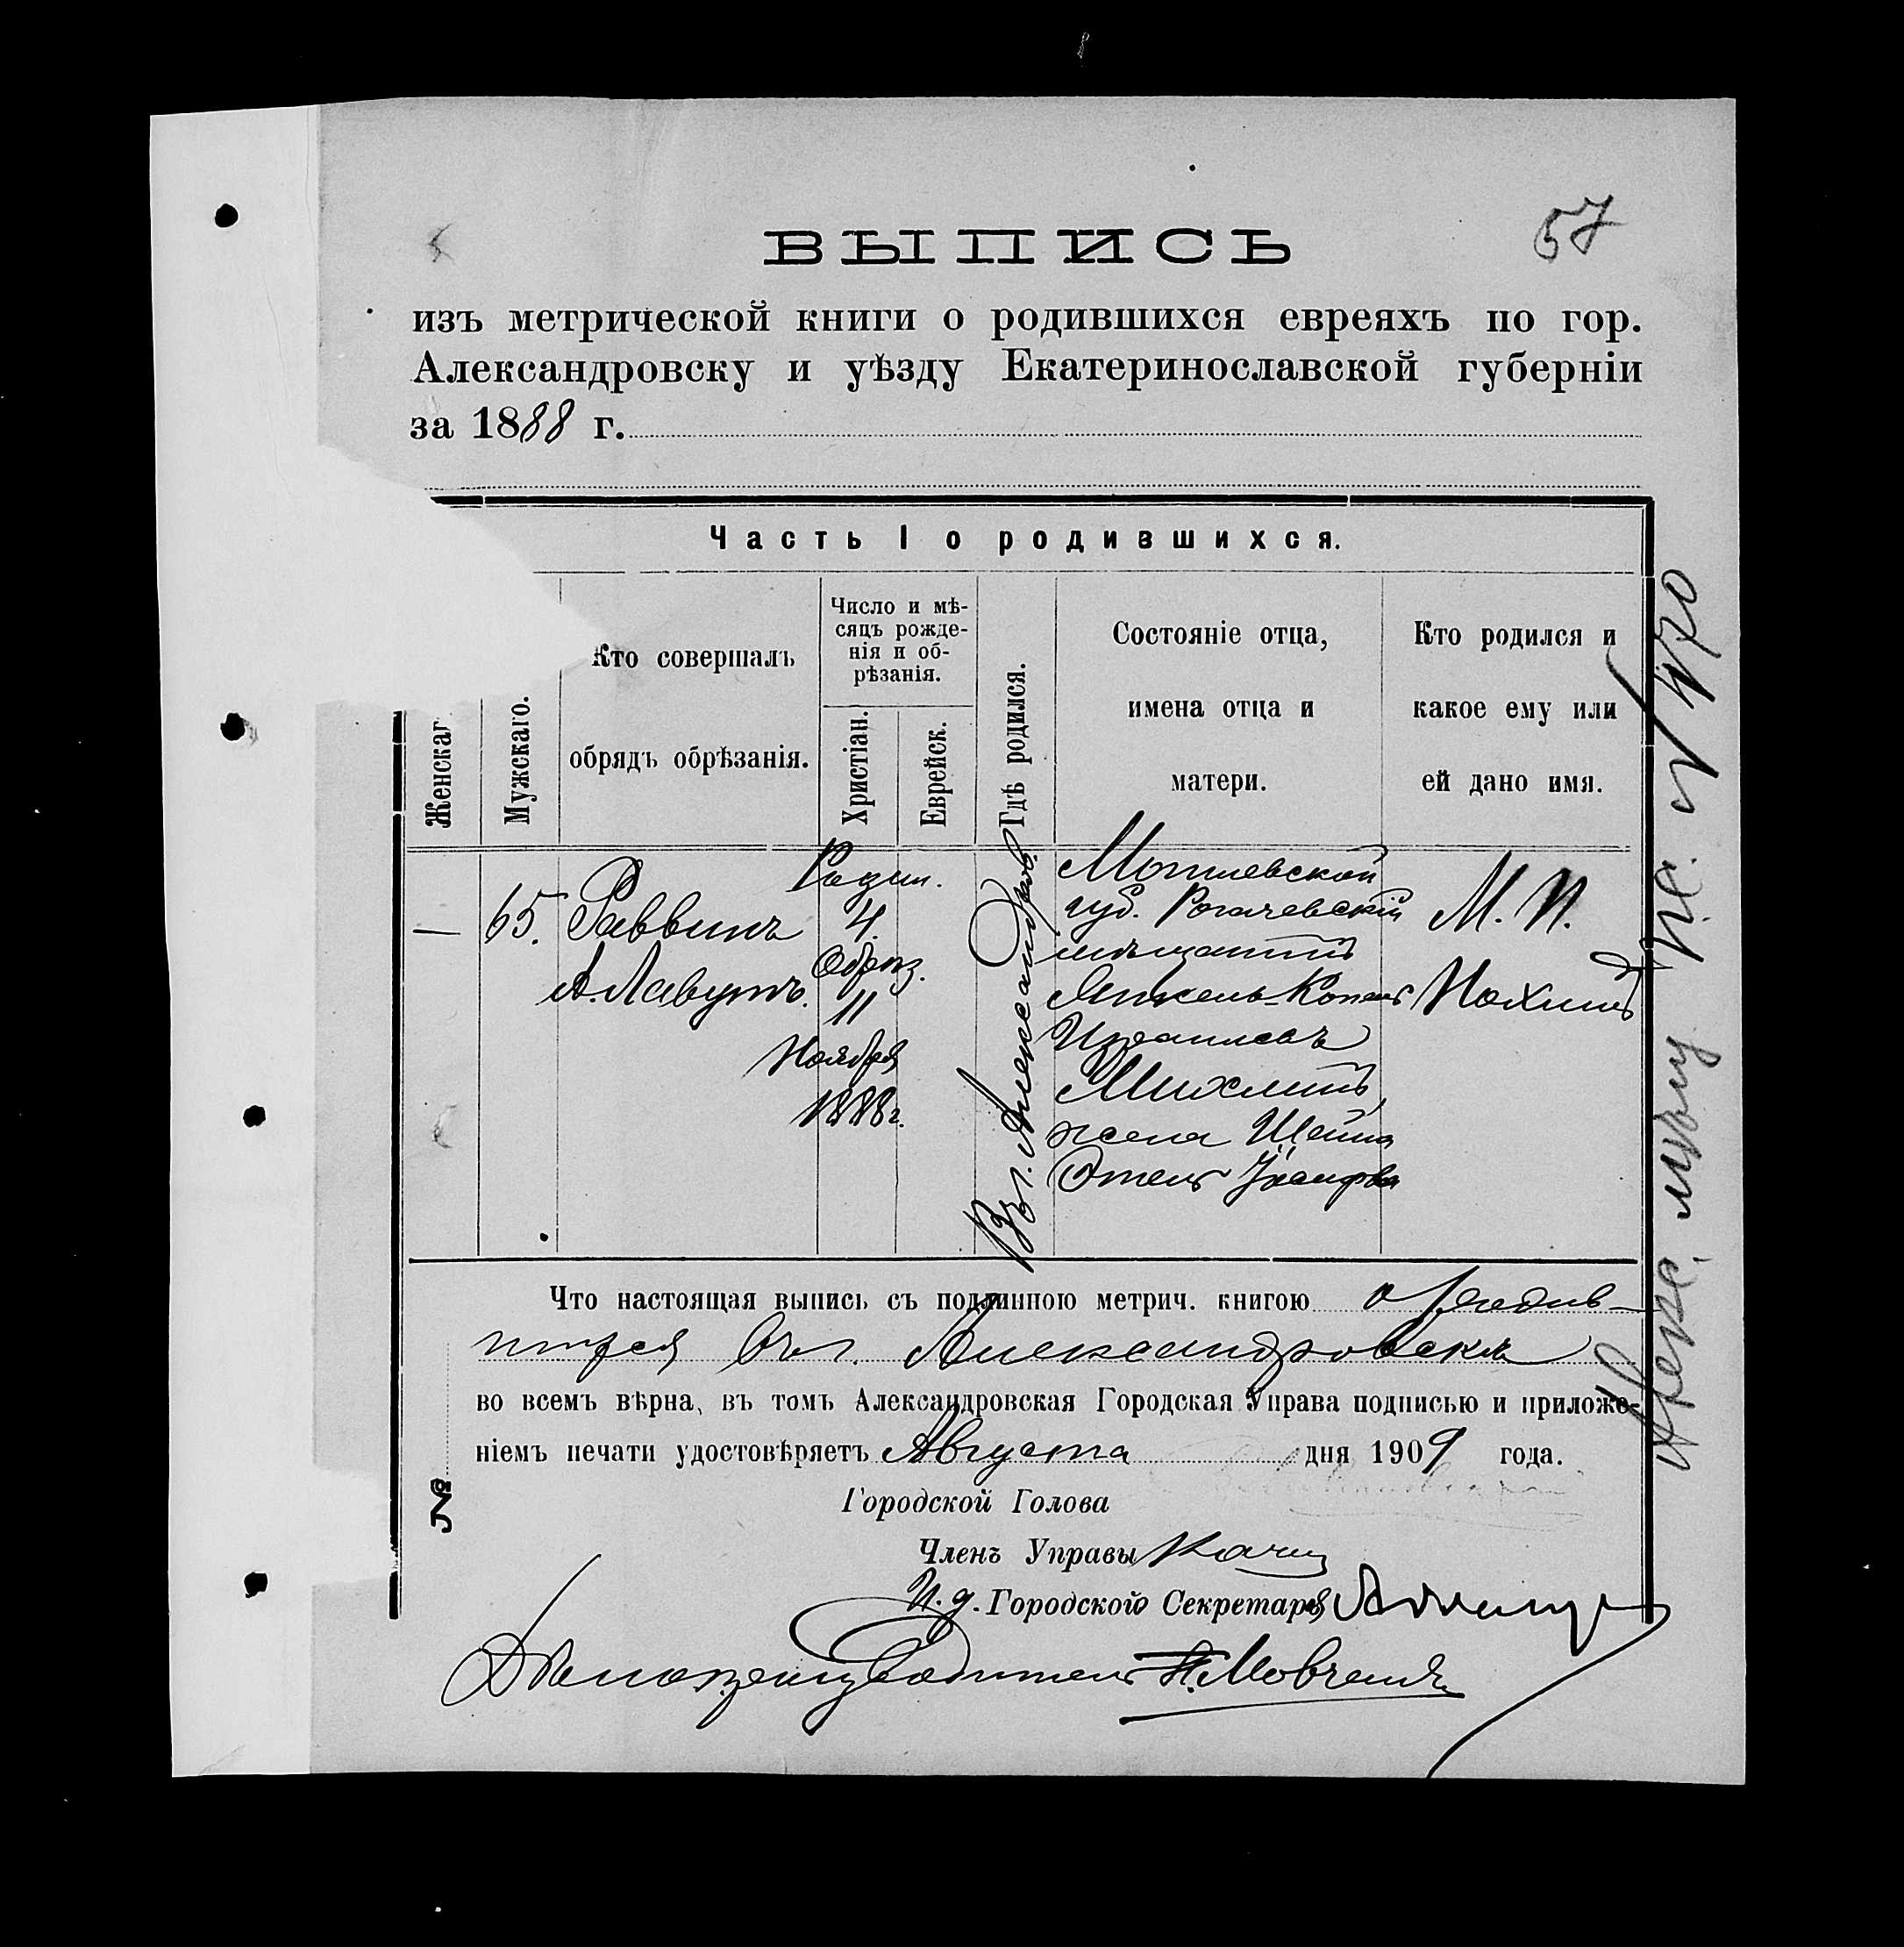 57
ВЫПИСЬ
изъ метрической книги о родившихся евреяхъ по гор.
Александровску и уѣзду Екатеринославской губерніи
за 1888 г.
Часть I о родившихся.
Женскаг
Мужскаго.
Кто совершалъ
обрядъ обрѣзанія.
Число и мѣ-
сяцъ рожде-
нія и об-
рѣзанія.
Христіан.
Еврейск.
Гдѣ родился.
Состояніе отца,
имена отца и
матери.
Кто родился и
какое ему или
ей дано имя.
—
65.
Раввинъ
А. Лавутъ.
Родил.
4.
Обрѣз.
11
Ноября
1888 г.
Въ г. Александров.
Могилевской
губ. Рогачевскій
мѣщанинъ
Янкель-Копель
Израилевъ
Михлинъ,
жена Шейна
Этель
М. П.
Нохимъ
Что настоящая выпись съ подлинною метрич. книгою о родив-
шихся въ г. Александровскѣ
во всемъ вѣрна, въ томъ Александровская Городская Управа подписью и приложе-
ніемъ печати удостовѣряетъ Августа дня 1909 года.
№
Городской Голова
Членъ Управы
И. д. Городского Секретаря
Дѣлопроизводитель Н. Мовчанъ